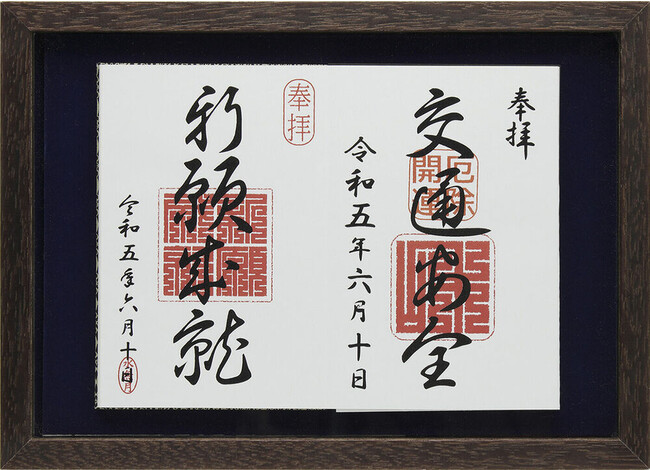 奉拝
交通安全
厄除
開運
令和五年六月十日
奉拝
祈願成就
令和五年六月十日